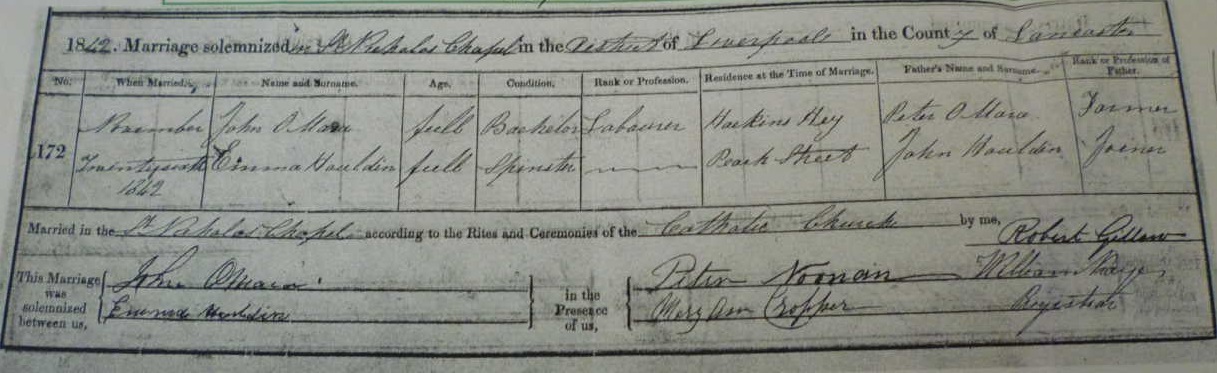 1842. Marriage solemnized in St Nicholas Chapel in the District of Liverpool in the County of Lancaster
No. When Married. Name and Surname. Age. Condition. Rank or Profession. Residence at the Time of Marriage. Father's Name and Surname. Rank or Profession of Father.
172
November John O Mara full Bachelor Labourer Hackins Hey Peter O Mara Farmer
Twentysixth Emma Houldin full Spinster Peach Street John Houldin Joiner
1842
Married in the St Nicholas Chapel according to the Rites and Ceremonies of the Catholic Church by me,
Robert Gillow
This Marriage was solemnized between us, John OMara in the Presence of us, Peter Noonan William
Emma Houldin Mary Ann Cropper Registrar